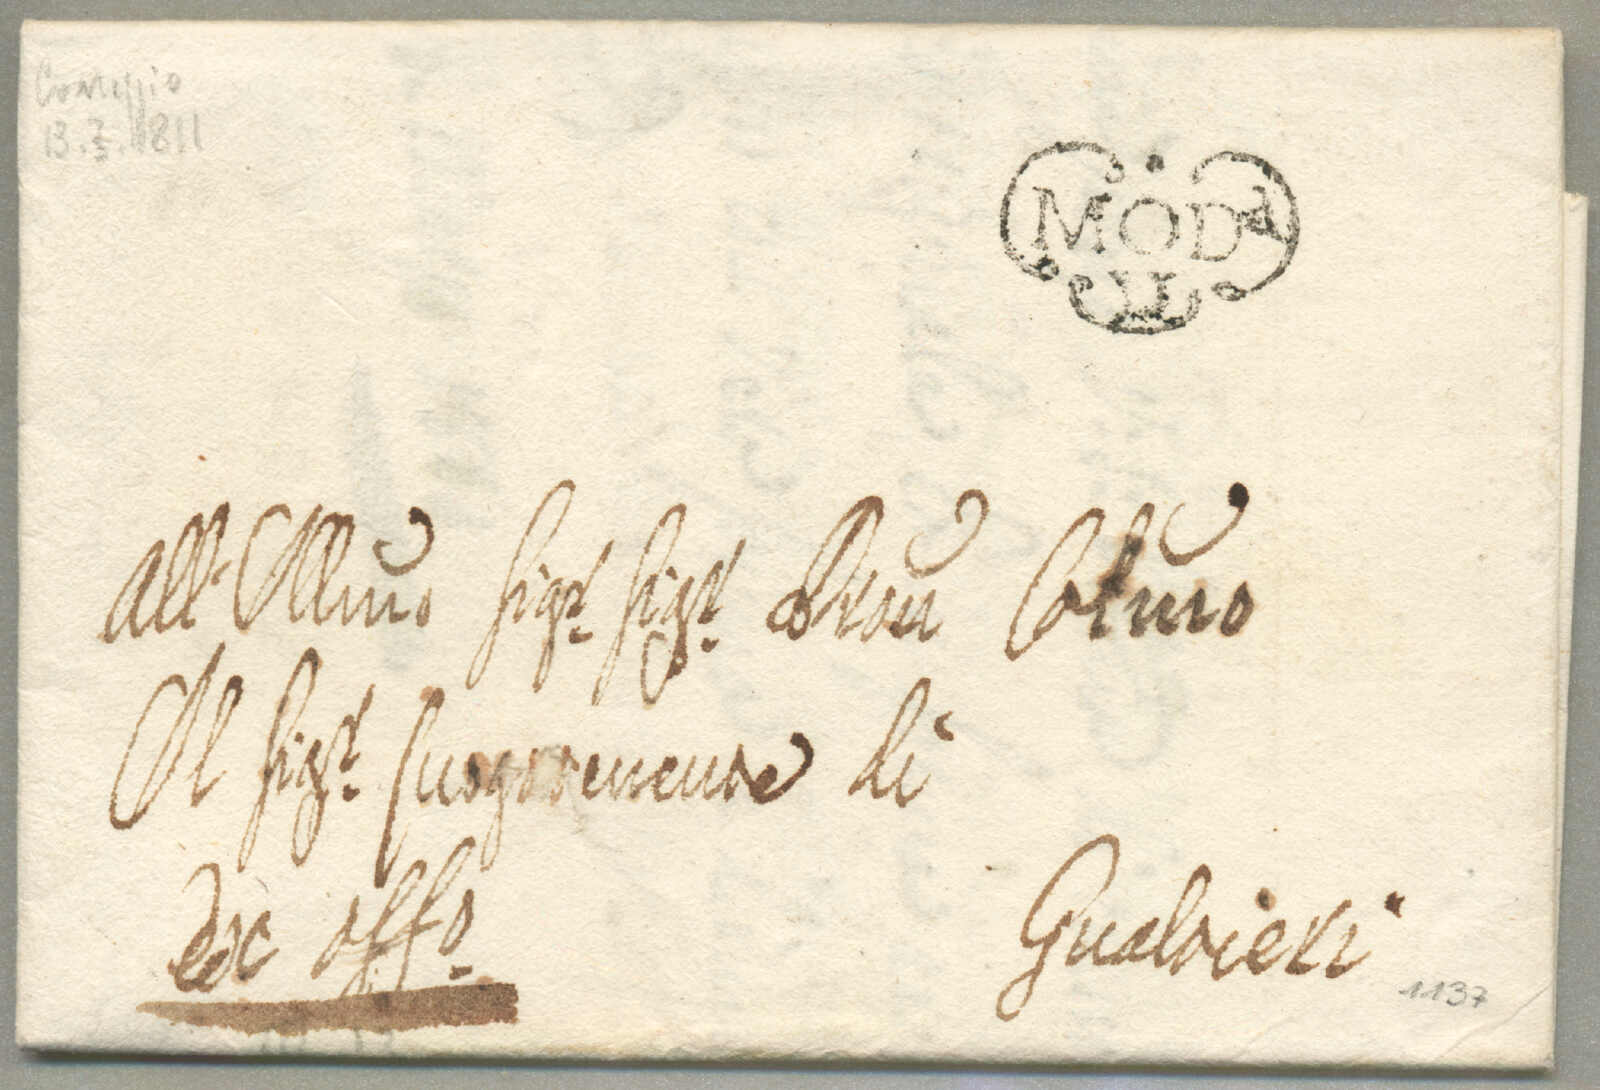 Correggio
13.3.1811
MODA
All Illmo Sigr Sigr Pron Colmo
Il Sigr Luogotenente di
ex offo
Gualtieri
1137